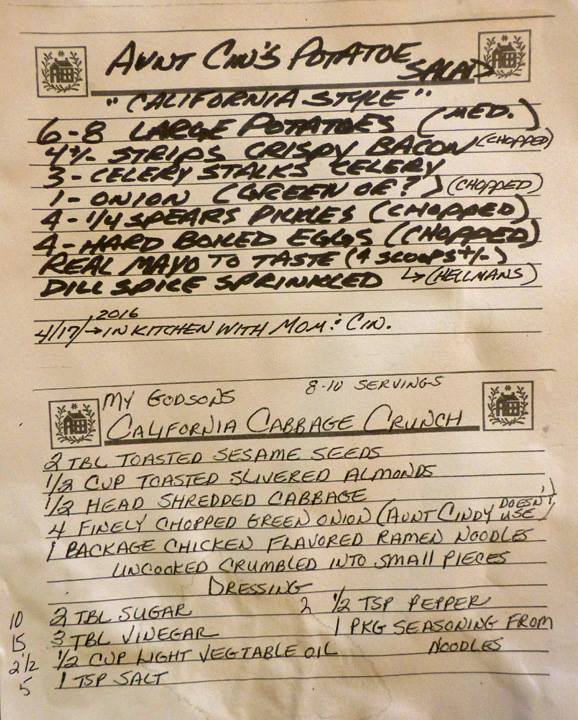 AUNT CIN'S POTATOE SALAD
"CALIFORNIA STYLE"
6-8 LARGE POTATOES (MED.)
4+/- STRIPS CRISPY BACON (CHOPPED)
3-CELERY STALKS CELERY
1-ONION (GREEN OR?) (CHOPPED)
4-1/4 SPEARS PICKLES (CHOPPED)
4-HARD BOILED EGGS (CHOPPED)
REAL MAYO TO TASTE (4 SCOOPS+/-)
DILL SPICE SPRINKLED ↳(HELLMANS)
4/17/2016 → IN KITCHEN WITH MOM : CIN.
MY GODSONS 8-10 SERVINGS
CALIFORNIA CABBAGE CRUNCH
2 TBL TOASTED SESAME SEEDS
1/2 CUP TOASTED SLIVERED ALMONDS
1/2 HEAD SHREDDED CABBAGE
4 FINELY CHOPPED GREEN ONION (AUNT CINDY DOESN'T USE)
1 PACKAGE CHICKEN FLAVORED RAMEN NOODLES
UNCOOKED CRUMBLED INTO SMALL PIECES
DRESSING
10 2 TBL SUGAR 2 1/2 TSP PEPPER
15 3 TBL VINEGAR 1 PKG SEASONING FROM NOODLES
2 1/2 1/2 CUP LIGHT VEGTABLE OIL
5 1 TSP SALT